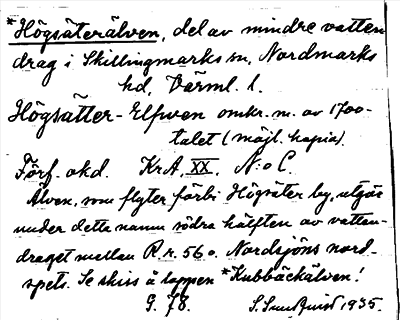 *Högsäterälven, del av mindre vatten
drag i Skillingmarks sn, Nordmarks
hd, Värml. l.
Högsätter-Elfwen omkr. m. av 1700-
talet (möjl. kopia).
Förf. okd. KrA, XX. N:o C.
Älven, som flyter förbi Högsäter by, utgör
under detta namn södra hälften av vatten-
draget mellan R.r. 56 o. Nordsjöns nord-
spets. Se skiss å lappen *Kubbäckälven!
G. 78. S. Sundquist 1935.